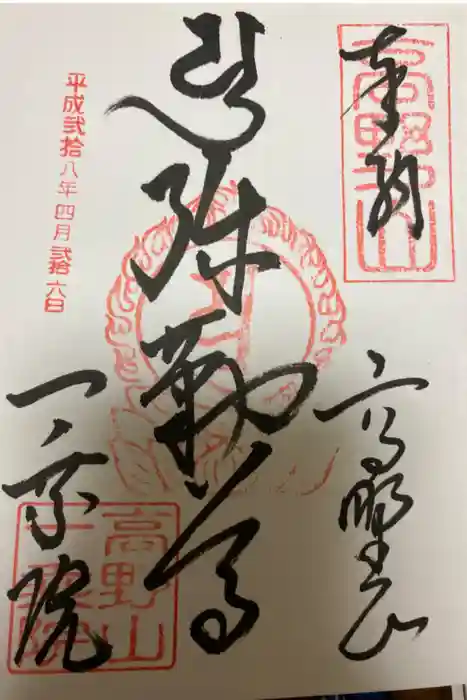 奉納
高野山
高野山
弥勒尊
平成弐拾八年四月弐拾六日
一乗院
高野山
一乗院